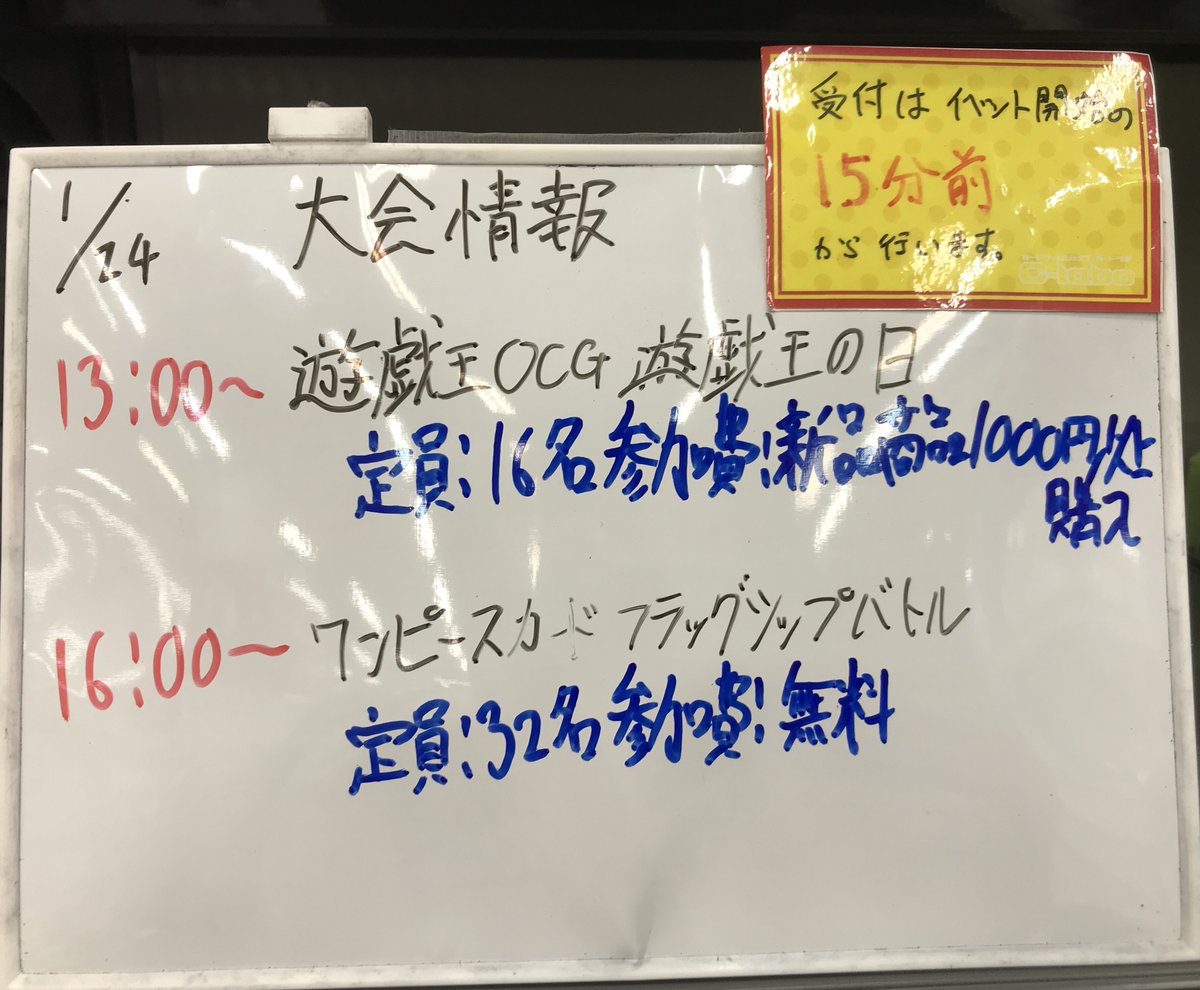 受付は イベント開始の
15分前
から 行います。
C-labo
1/24 大会情報
13:00~ 遊戯王OCG 遊戯王の日
定員:16名 参加費:新品商品1000円以上
購入
16:00~ ワンピースカード フラッグシップバトル
定員:32名 参加費:無料